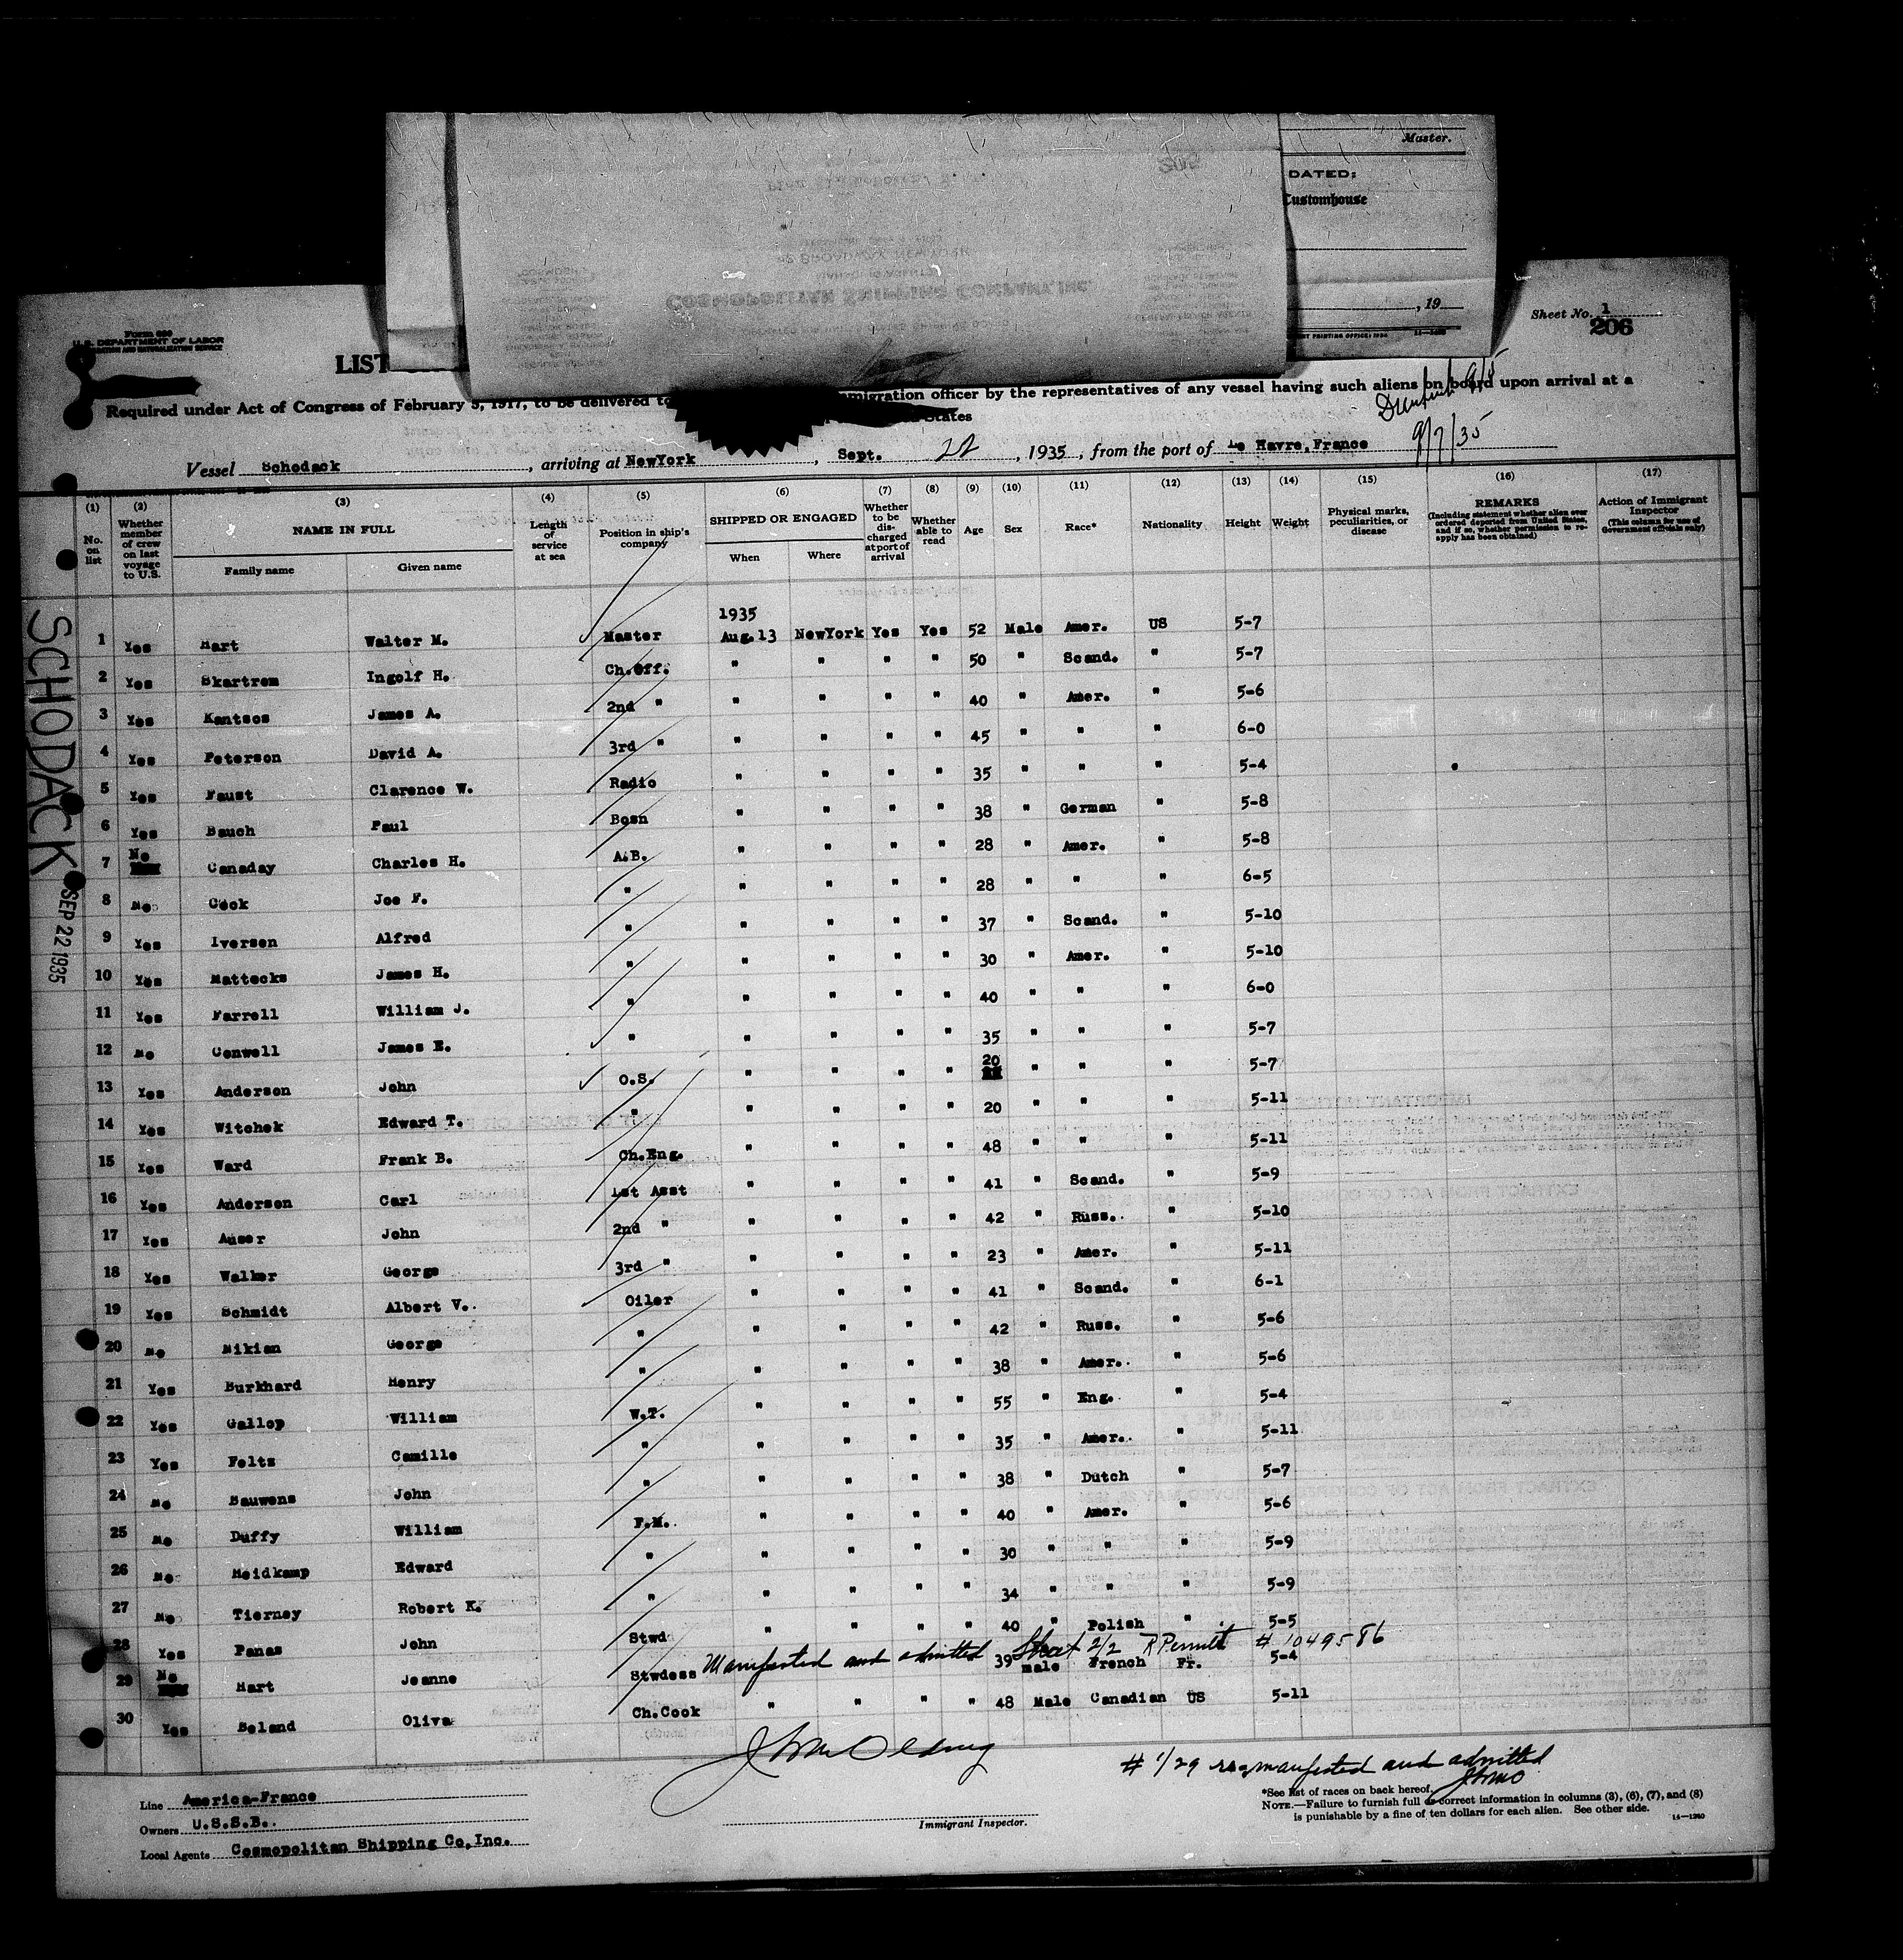 Master.
DATED:
Customhouse
, 19
COSMOPOLITAN SHIPPING COMPANY, INC.
42 BROADWAY NEW YORK
Sheet No. 1
206
U.S. DEPARTMENT OF LABOR
LIST
Required under Act of Congress of February 5, 1917, to be delivered to immigration officer by the representatives of any vessel having such aliens on board upon arrival at a
States
9/5
9/7/35
Vessel Schodack , arriving at NewYork , Sept. 22 , 1935 , from the port of Le Havre, France
(1) (2) (3) (4) (5) (6) (7) (8) (9) (10) (11) (12) (13) (14) (15) (16) (17)
No. on list
Whether member of crew on last voyage to U.S.
NAME IN FULL
Family name Given name
Length of service at sea
Position in ship's company
SHIPPED OR ENGAGED
When Where
Whether to be discharged at port of arrival
Whether able to read
Age Sex Race* Nationality Height Weight
Physical marks, peculiarities, or disease
REMARKS
(Including statement whether alien ever ordered deported from United States, and if so, whether permission to reapply has been obtained)
Action of Immigrant Inspector
(This column for use of Government officials only)
SCHODACK
SEP 22 1935
1935
1 Yes Hart Walter M. Master Aug.13 NewYork Yes Yes 52 Male Amer. US 5-7
2 Yes Skartrem Ingolf H. Ch.Off. " " " " 50 " Scand. " 5-7
3 Yes Kantsos James A. 2nd " " " " " 40 " Amer. " 5-6
4 Yes Peterson David A. 3rd " " " " " 45 " " " 6-0
5 Yes Faust Clarence W. Radio " " " " 35 " " " 5-4
6 Yes Bauch Paul Bosn " " " " 38 " German " 5-8
7 No Canaday Charles H. A.B. " " " " 28 " Amer. " 5-8
8 No Cook Joe F. " " " " " 28 " " " 6-5
9 Yes Iversen Alfred " " " " " 37 " Scand. " 5-10
10 Yes Mattocks James H. " " " " " 30 " Amer. " 5-10
11 Yes Farrell William J. " " " " " 40 " " " 6-0
12 No Conwell James E. " " " " " 35 " " " 5-7
13 Yes Anderson John O.S. " " " " 20 " " " 5-7
14 Yes Witchek Edward T. " " " " " 20 " " " 5-11
15 Yes Ward Frank B. Ch.Eng. " " " " 48 " " " 5-11
16 Yes Andersen Carl 1st Asst " " " " 41 " Scand. " 5-9
17 Yes Auser John 2nd " " " " " 42 " Russ. " 5-10
18 Yes Walker George 3rd " " " " " 23 " Amer. " 5-11
19 Yes Schmidt Albert V. Oiler " " " " 41 " Scand. " 6-1
20 No Mikian George " " " " " 42 " Russ. " 5-6
21 Yes Burkhard Henry " " " " " 38 " Amer. " 5-6
22 Yes Gallop William W.T. " " " " 55 " Eng. " 5-4
23 Yes Felts Camille " " " " " 35 " Amer. " 5-11
24 No Bauwens John " " " " " 38 " Dutch " 5-7
25 No Duffy William F.M. " " " " 40 " Amer. " 5-6
26 No Heidkamp Edward " " " " " 30 " " " 5-9
27 No Tierney Robert K. " " " " " 34 " " " 5-9
28 Yes Panas John Stwd " " " " 40 " Polish " 5-5
Manifested and admitted Sheet 2/2 R Permit # 1049586
29 No Hart Jeanne Stwdess 39 male French Fr. 5-4
30 Yes Beland Oliva Ch.Cook " " " " 48 Male Canadian US 5-11
# 1/29 re-manifested and admitted
Line America-France
Owners U.S.S.B.
Local Agents Cosmopolitan Shipping Co, Inc.
Immigrant Inspector.
*See list of races on back hereof.
NOTE.—Failure to furnish full or correct information in columns (3), (6), (7), and (8)
is punishable by a fine of ten dollars for each alien. See other side.